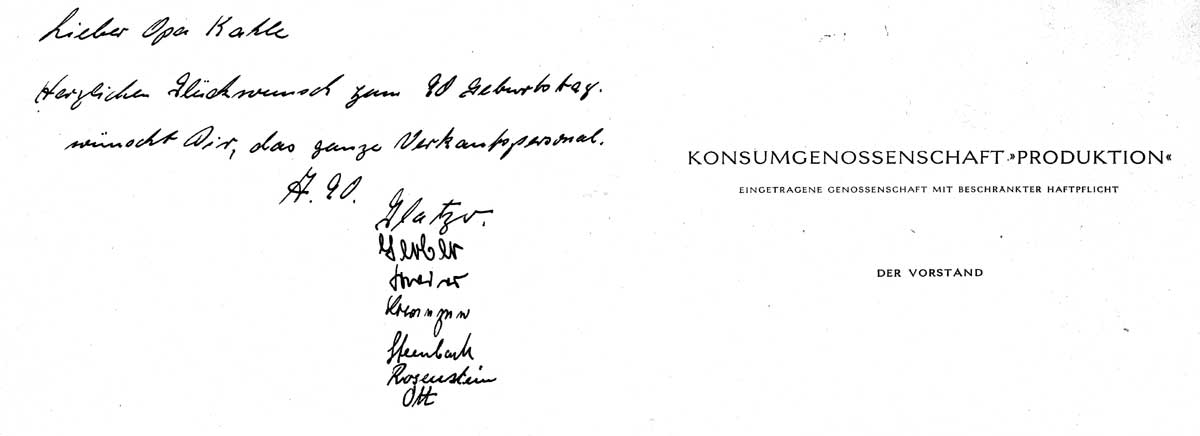 Lieber Opa Kahle
Herzlichen Glückwunsch zum 90 Geburtstag.
wünscht Dir, das ganze Verkaufspersonal.
Gerber
Steenback
Rosenstein
Ott
KONSUMGENOSSENSCHAFT »PRODUKTION«
EINGETRAGENE GENOSSENSCHAFT MIT BESCHRÄNKTER HAFTPFLICHT
DER VORSTAND